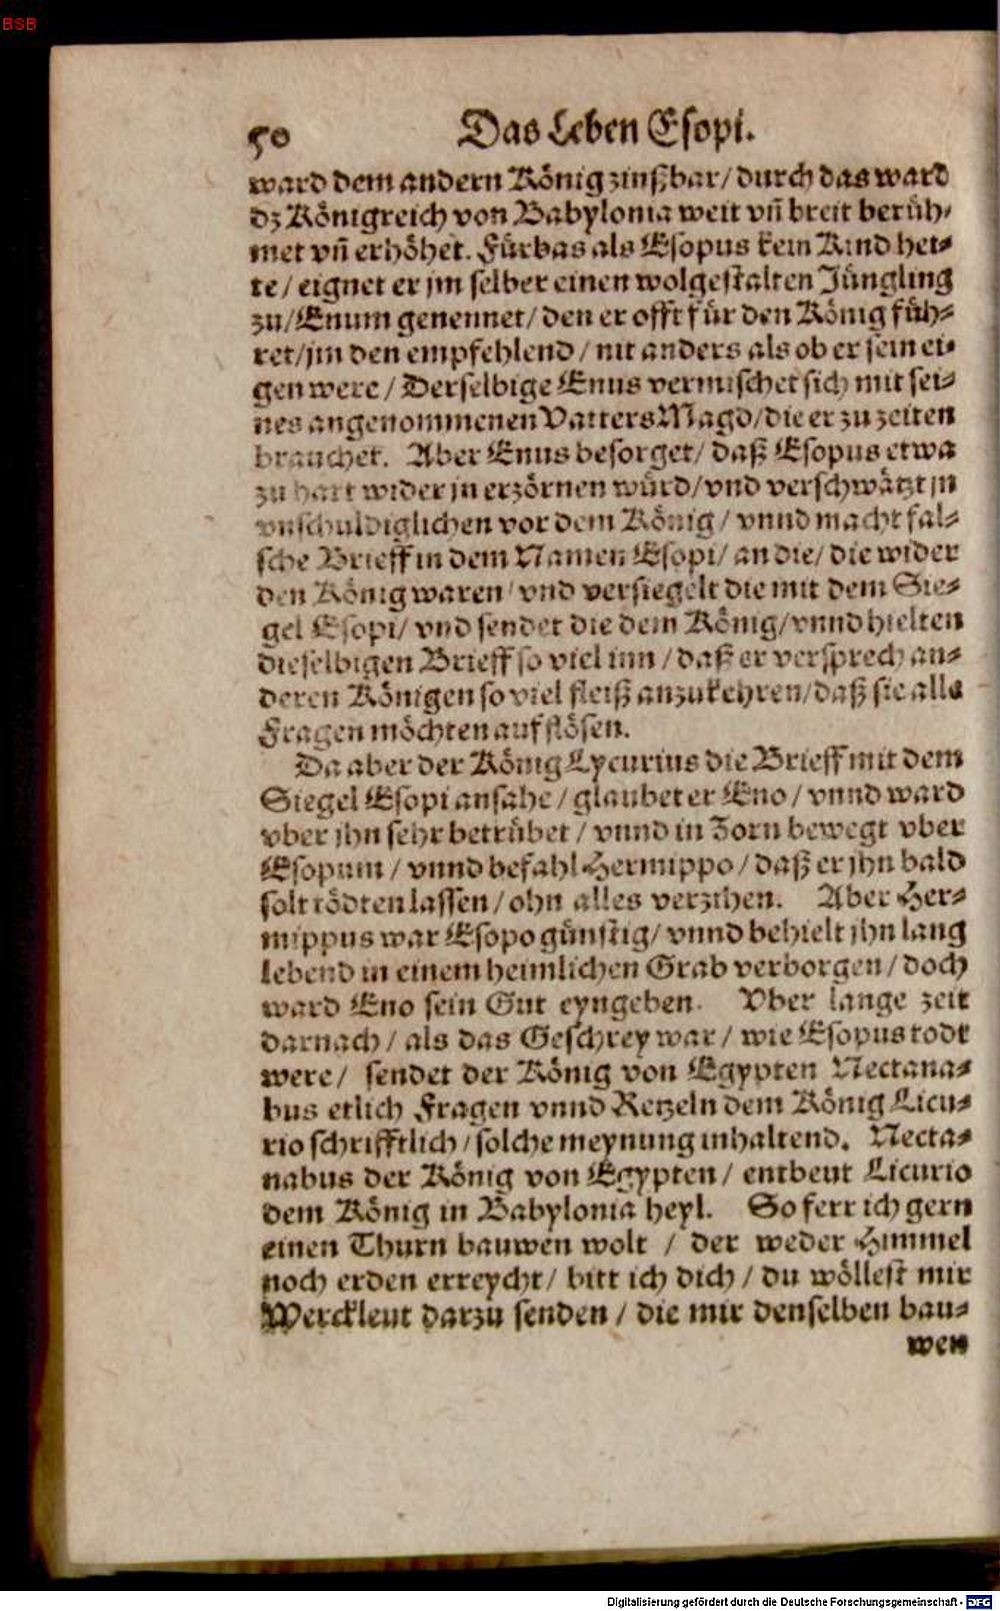 BSB
50 Das Leben Esopi.
ward dem andern König zinßbar/ durch das ward
dz Königreich von Babylonia weit vñ breit berüh-
met vñ erhöhet. Fürbas als Esopus kein Kind het-
te/ eignet er jm selber einen wolgestalten Jüngling
zu/ Enum genennet/ den er offt für den König füh-
ret/ jm den empfehlend/ nit anders als ob er sein ei-
gen were/ Derselbige Enus vermischet sich mit sei-
nes angenommenen Vatters Magd/ die er zu zeiten
brauchet. Aber Enus besorget/ daß Esopus etwa
zu hart wider jn erzörnen würd/ vnd verschwätzt jn
vnschuldiglichen vor dem König/ vnnd macht fal-
sche Brieff in dem Namen Esopi/ an die/ die wider
den König waren/ vnd versiegelt die mit dem Sie-
gel Esopi/ vnd sendet die dem König/ vnnd hielten
dieselbigen Brieff so viel inn/ daß er versprech an-
deren Königen so viel fleiß anzukehren/ daß sie alle
Fragen möchten aufflösen.
Da aber der König Lycurius die Brieff mit dem
Siegel Esopi ansahe/ glaubet er Eno/ vnnd ward
vber jhn sehr betrübet/ vnnd in Zorn bewegt vber
Esopum/ vnnd befahl Hermippo/ daß er jhn bald
solt tödten lassen/ ohn alles verzihen. Aber Her-
mippus war Esopo günstig/ vnnd behielt jhn lang
lebend in einem heimlichen Grab verborgen/ doch
ward Eno sein Gut eyngeben. Vber lange zeit
darnach/ als das Geschrey war/ wie Esopus todt
were/ sendet der König von Egypten Nectana-
bus etlich Fragen vnnd Retzeln dem König Licu-
rio schrifftlich/ solche meynung inhaltend. Necta-
nabus der König von Egypten/ entbeut Licurio
dem König in Babylonia heyl. So ferr ich gern
einen Thurn bauwen wolt/ der weder Himmel
noch erden erreycht/ bitt ich dich/ du wöllest mir
Werckleut darzu senden/ die mir denselben bau-
wen
Digitalisierung gefördert durch die Deutsche Forschungsgemeinschaft - DFG